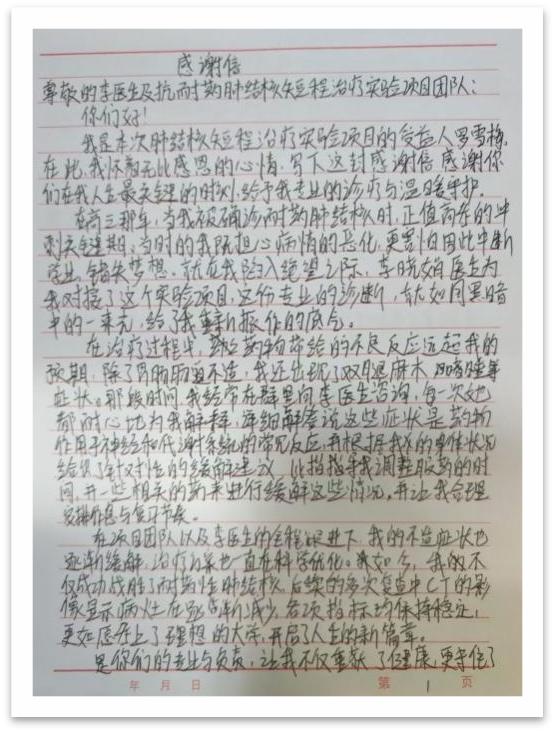 感谢信
尊敬的李医生及抗耐药肺结核短程治疗实验项目团队：
你们好！
我是本次肺结核短程治疗实验项目的受益人罗雪梅，
在此，我怀着无比感恩的心情，写下这封感谢信，感谢你
们在我人生最关键的时刻，给予我专业的诊疗与温暖守护。
在高三那年，当我被确诊耐药肺结核时，正值高考的冲
刺关键期，当时的我既担心病情的恶化，更害怕因此中断
学业，错失梦想。就在我陷入绝望之际，李晓 医生为
我对接了这个实验项目，这份专业的诊断， 如同黑暗
中的一束光，给了我重新振作的底气。
在治疗过程中， 药物带给的不良反应远超我的
预期，除了胃肠道不适，我还出现了双腿麻木、 等
症状。那段时间，我经常在群里向李医生咨询，每一次她
都耐心地为我解释，详细解答说这些症状是药物
作用于神经和代谢系统的常见反应，并根据我的身体状况
给出了针对性的缓解建议，比 指导我调整服药的时
间，开一些相关的药来进行缓解这些情况，并让我合理
安排作息与复习节奏。
在项目团队以及李医生的全程跟进下，我的不适症状也
逐渐缓解，治疗 也一直在科学优化。 如今，我的不
仅成功战胜了耐药性肺结核，后续的多次复查中CT的影
像显示病灶在 渐减少，各项指标均保持稳定，
更如愿考上了理想的大学，开启了人生的新篇章。
是你们的专业与负责，让我不仅重获了健康，更守住了
年 月 日 第 1 页